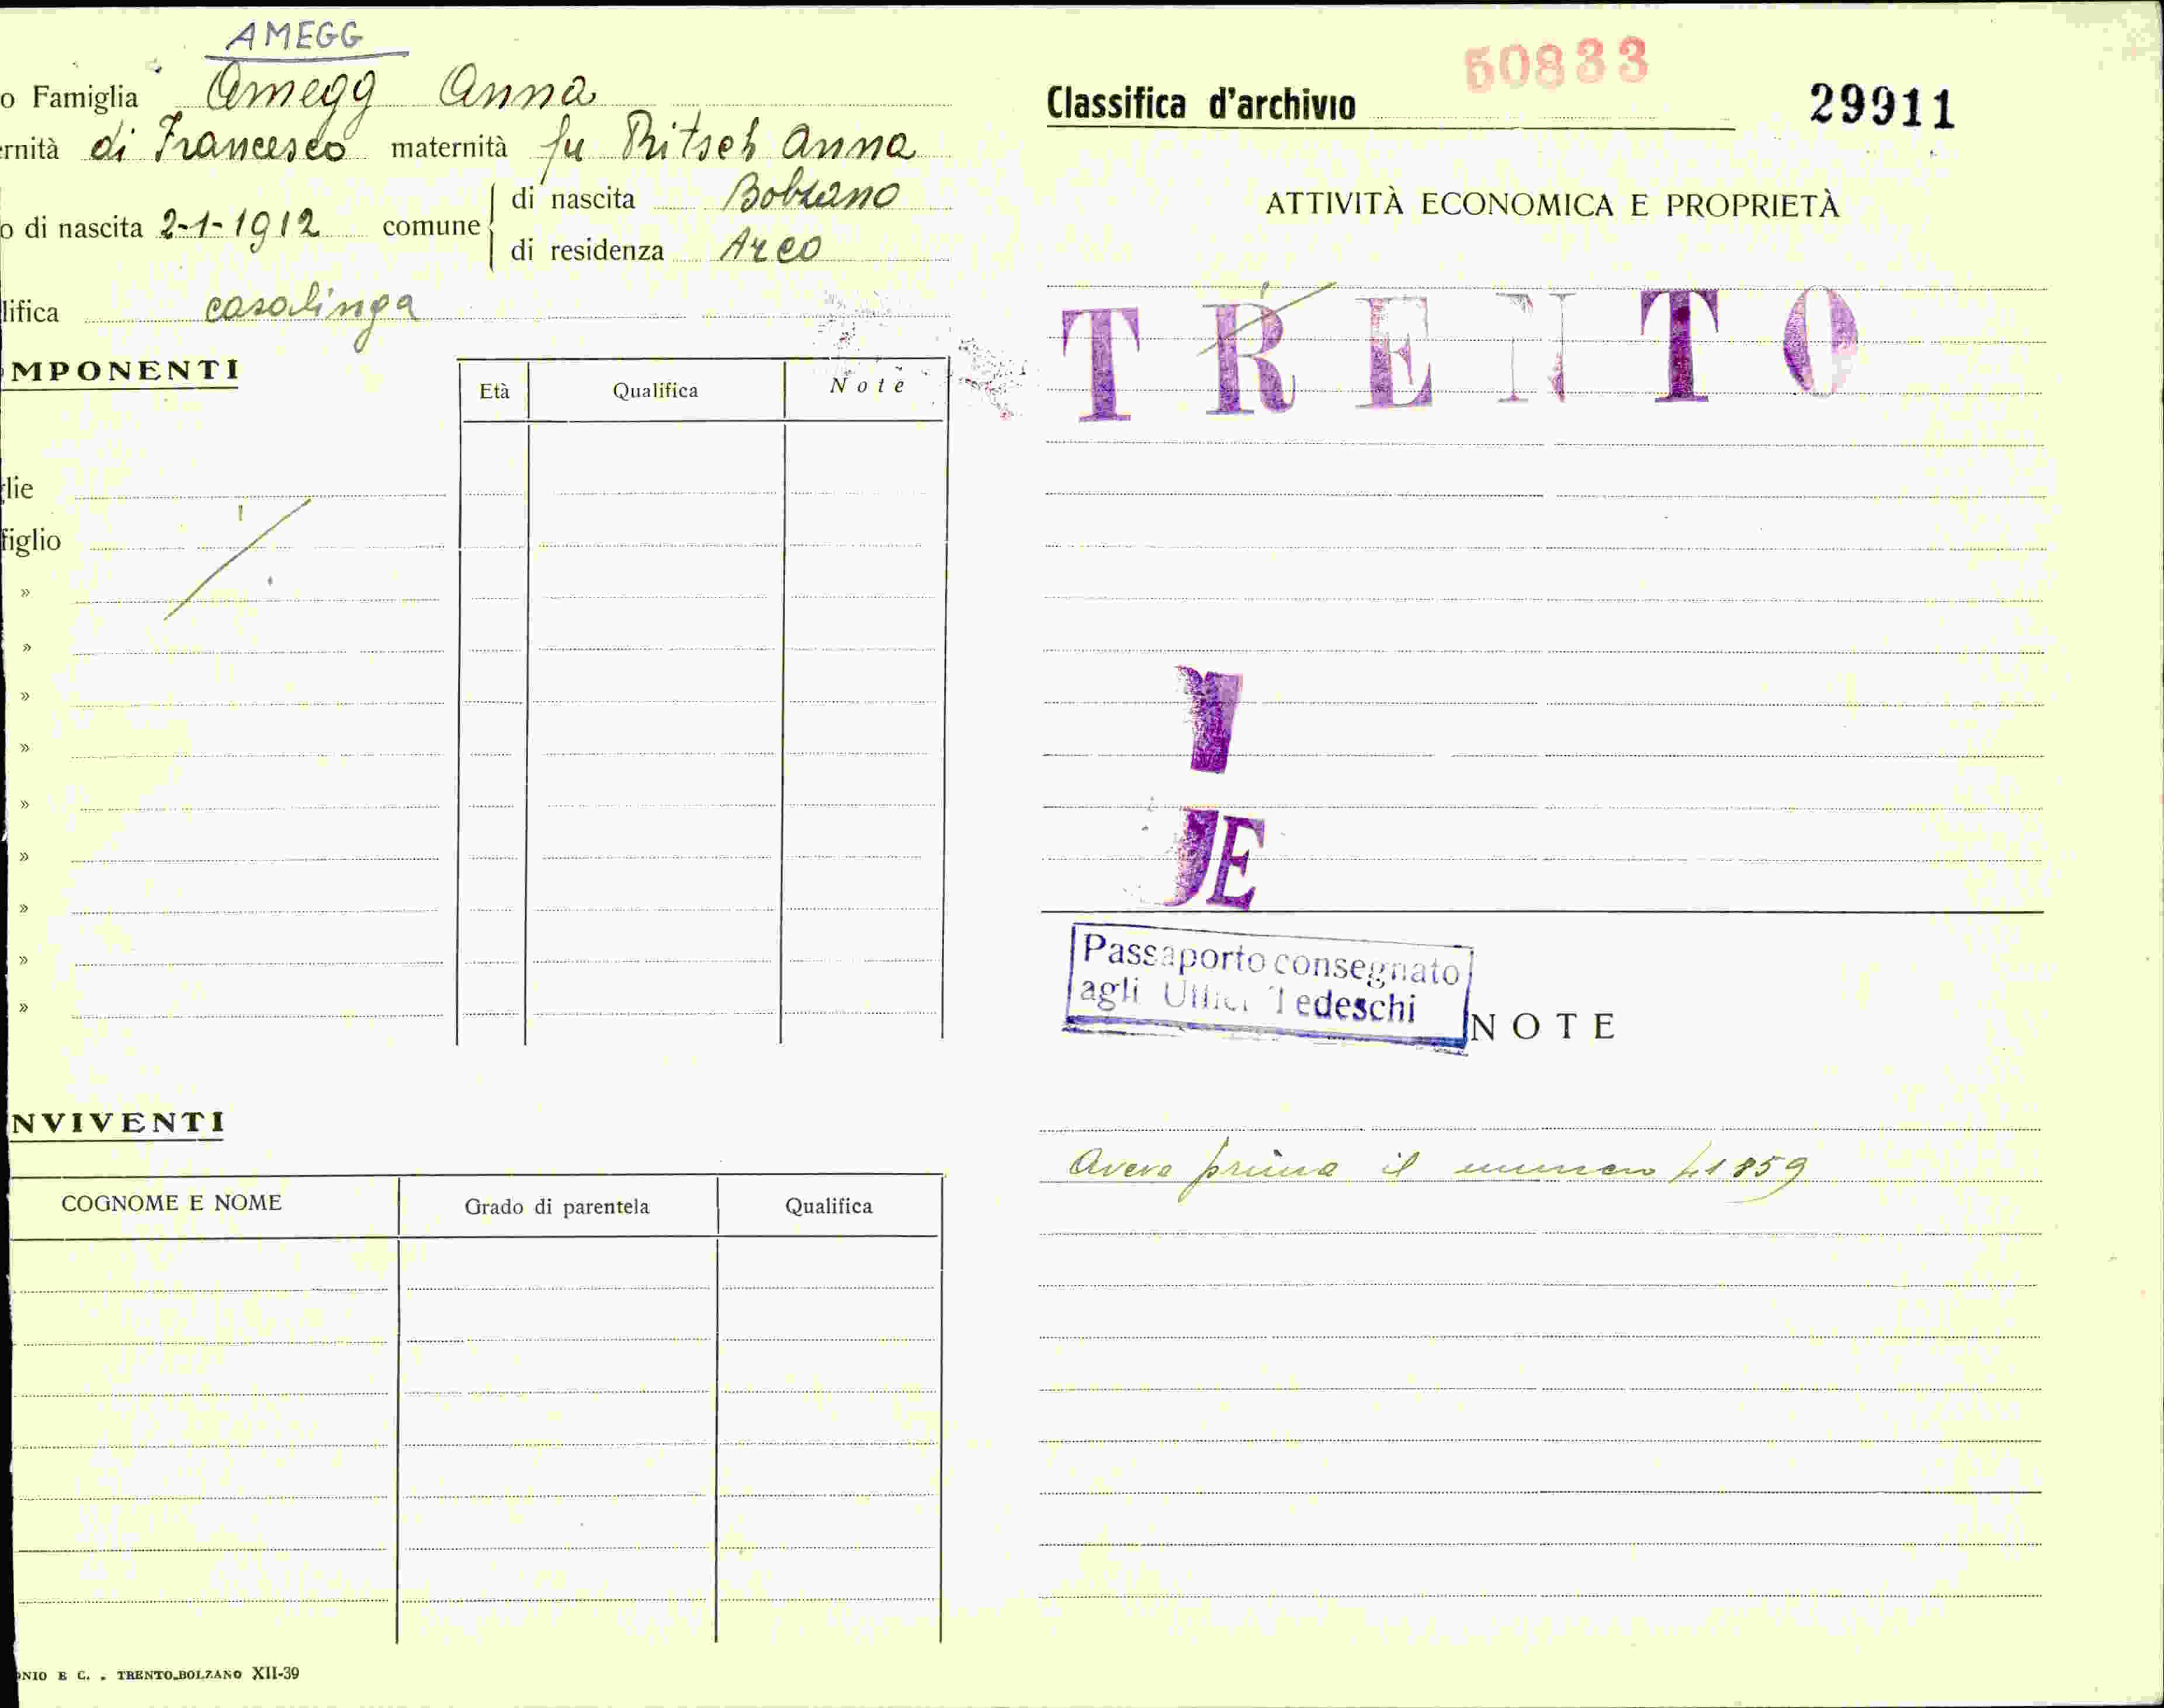 AMEGG
o Famiglia Amegg Anna
rnità di Francesco maternità fu Pritsch Anna
o di nascita 2-1-1912 comune di nascita Bolzano
di residenza Arco
lifica casalinga
MPONENTI
Età Qualifica Note
lie
figlio
»
»
»
»
»
»
»
»
»
NVIVENTI
COGNOME E NOME Grado di parentela Qualifica
NIO E C. . TRENTO-BOLZANO XII-39
60833
Classifica d'archivio 29911
ATTIVITÀ ECONOMICA E PROPRIETÀ
TRENTO
E
Passaporto consegnato
agli Uffici Tedeschi
NOTE
Aveva prima il numero 41859